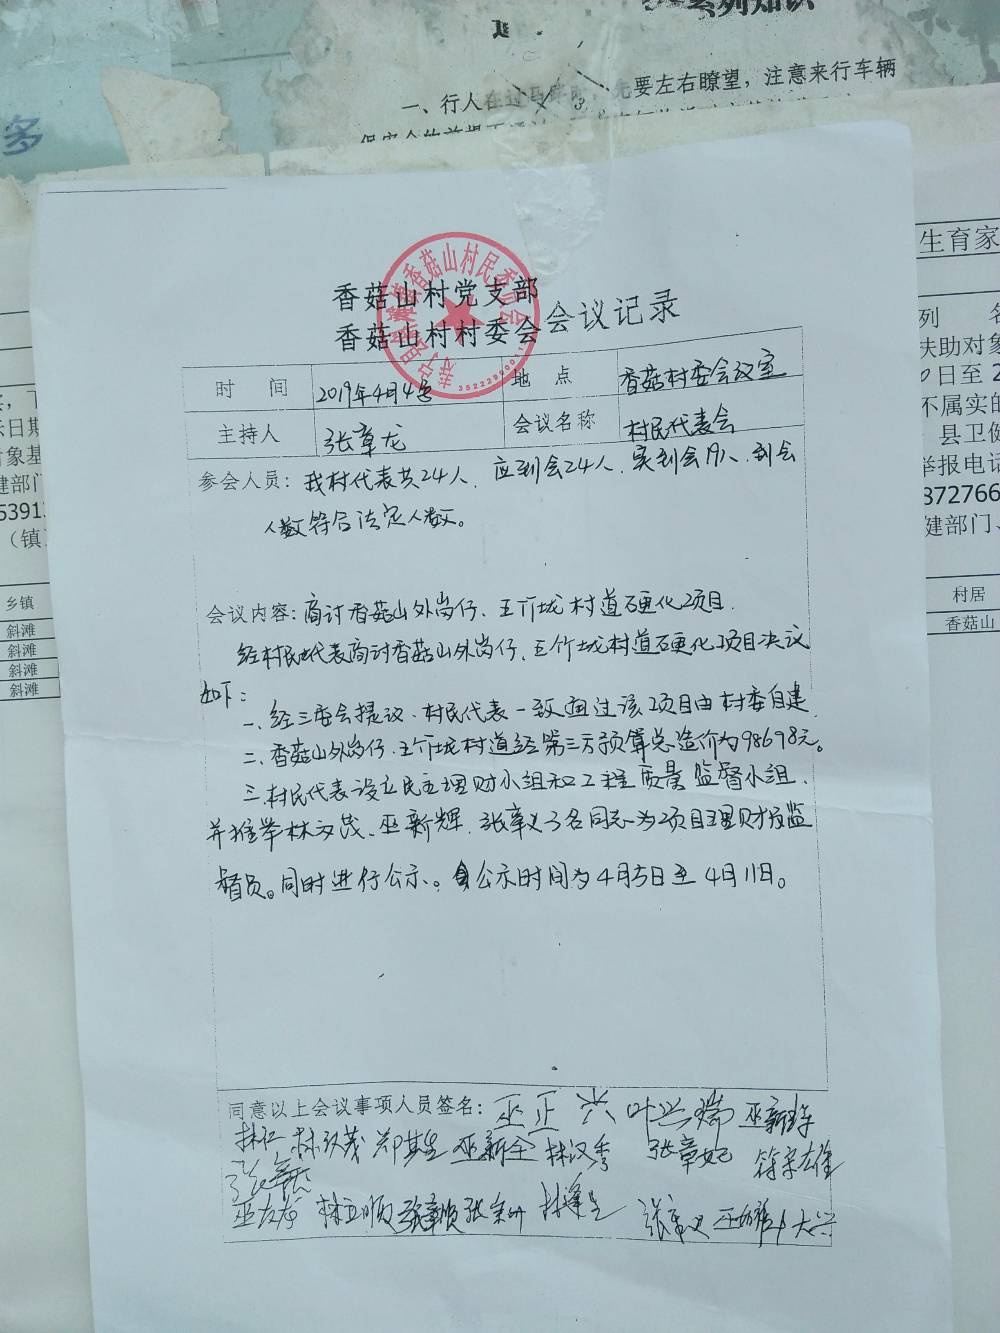 系列知识
一、行人在过马路时，先要左右瞭望，注意来行车辆
多
香菇山村党支部
香菇山村村委会会议记录
寿宁县斜滩镇香菇山村民委员会
时间 2019年4月4日 地点 香菇村委会议室
主持人 张章龙 会议名称 村民代表会
参会人员：我村代表共24人、应到会24人、实到会19人、到会
人数符合法定人数。
会议内容：商讨香菇山外岗仔、王竹垅村道硬化项目.
经村民代表商讨香菇山外岗仔、王竹垅村道硬化项目决议
如下：
一、经三委会提议、村民代表一致通过该项目由村委自建
二、香菇山外岗仔、王竹垅村道经第三方预算总造价为98698元。
三、村民代表设立民主理财小组和工程质量监督小组、
并推举林立茂、巫新辉、张章义3名同志为项目理财及监
督员。同时进行公示。公示时间为4月5日至4月11日。
同意以上会议事项人员签名：巫正兴 叶兴瑞
郑其生 巫新全 林汉秀 张章妃 符宗雄
林立顺 张章顺 张章义
生育家
列 名
扶助对象
0日至2
不属实的
县卫健
举报电话
872766
健部门、
村居
香菇山
示日期
对象基
建部门
53913
（镇
乡镇
斜滩
斜滩
斜滩
斜滩